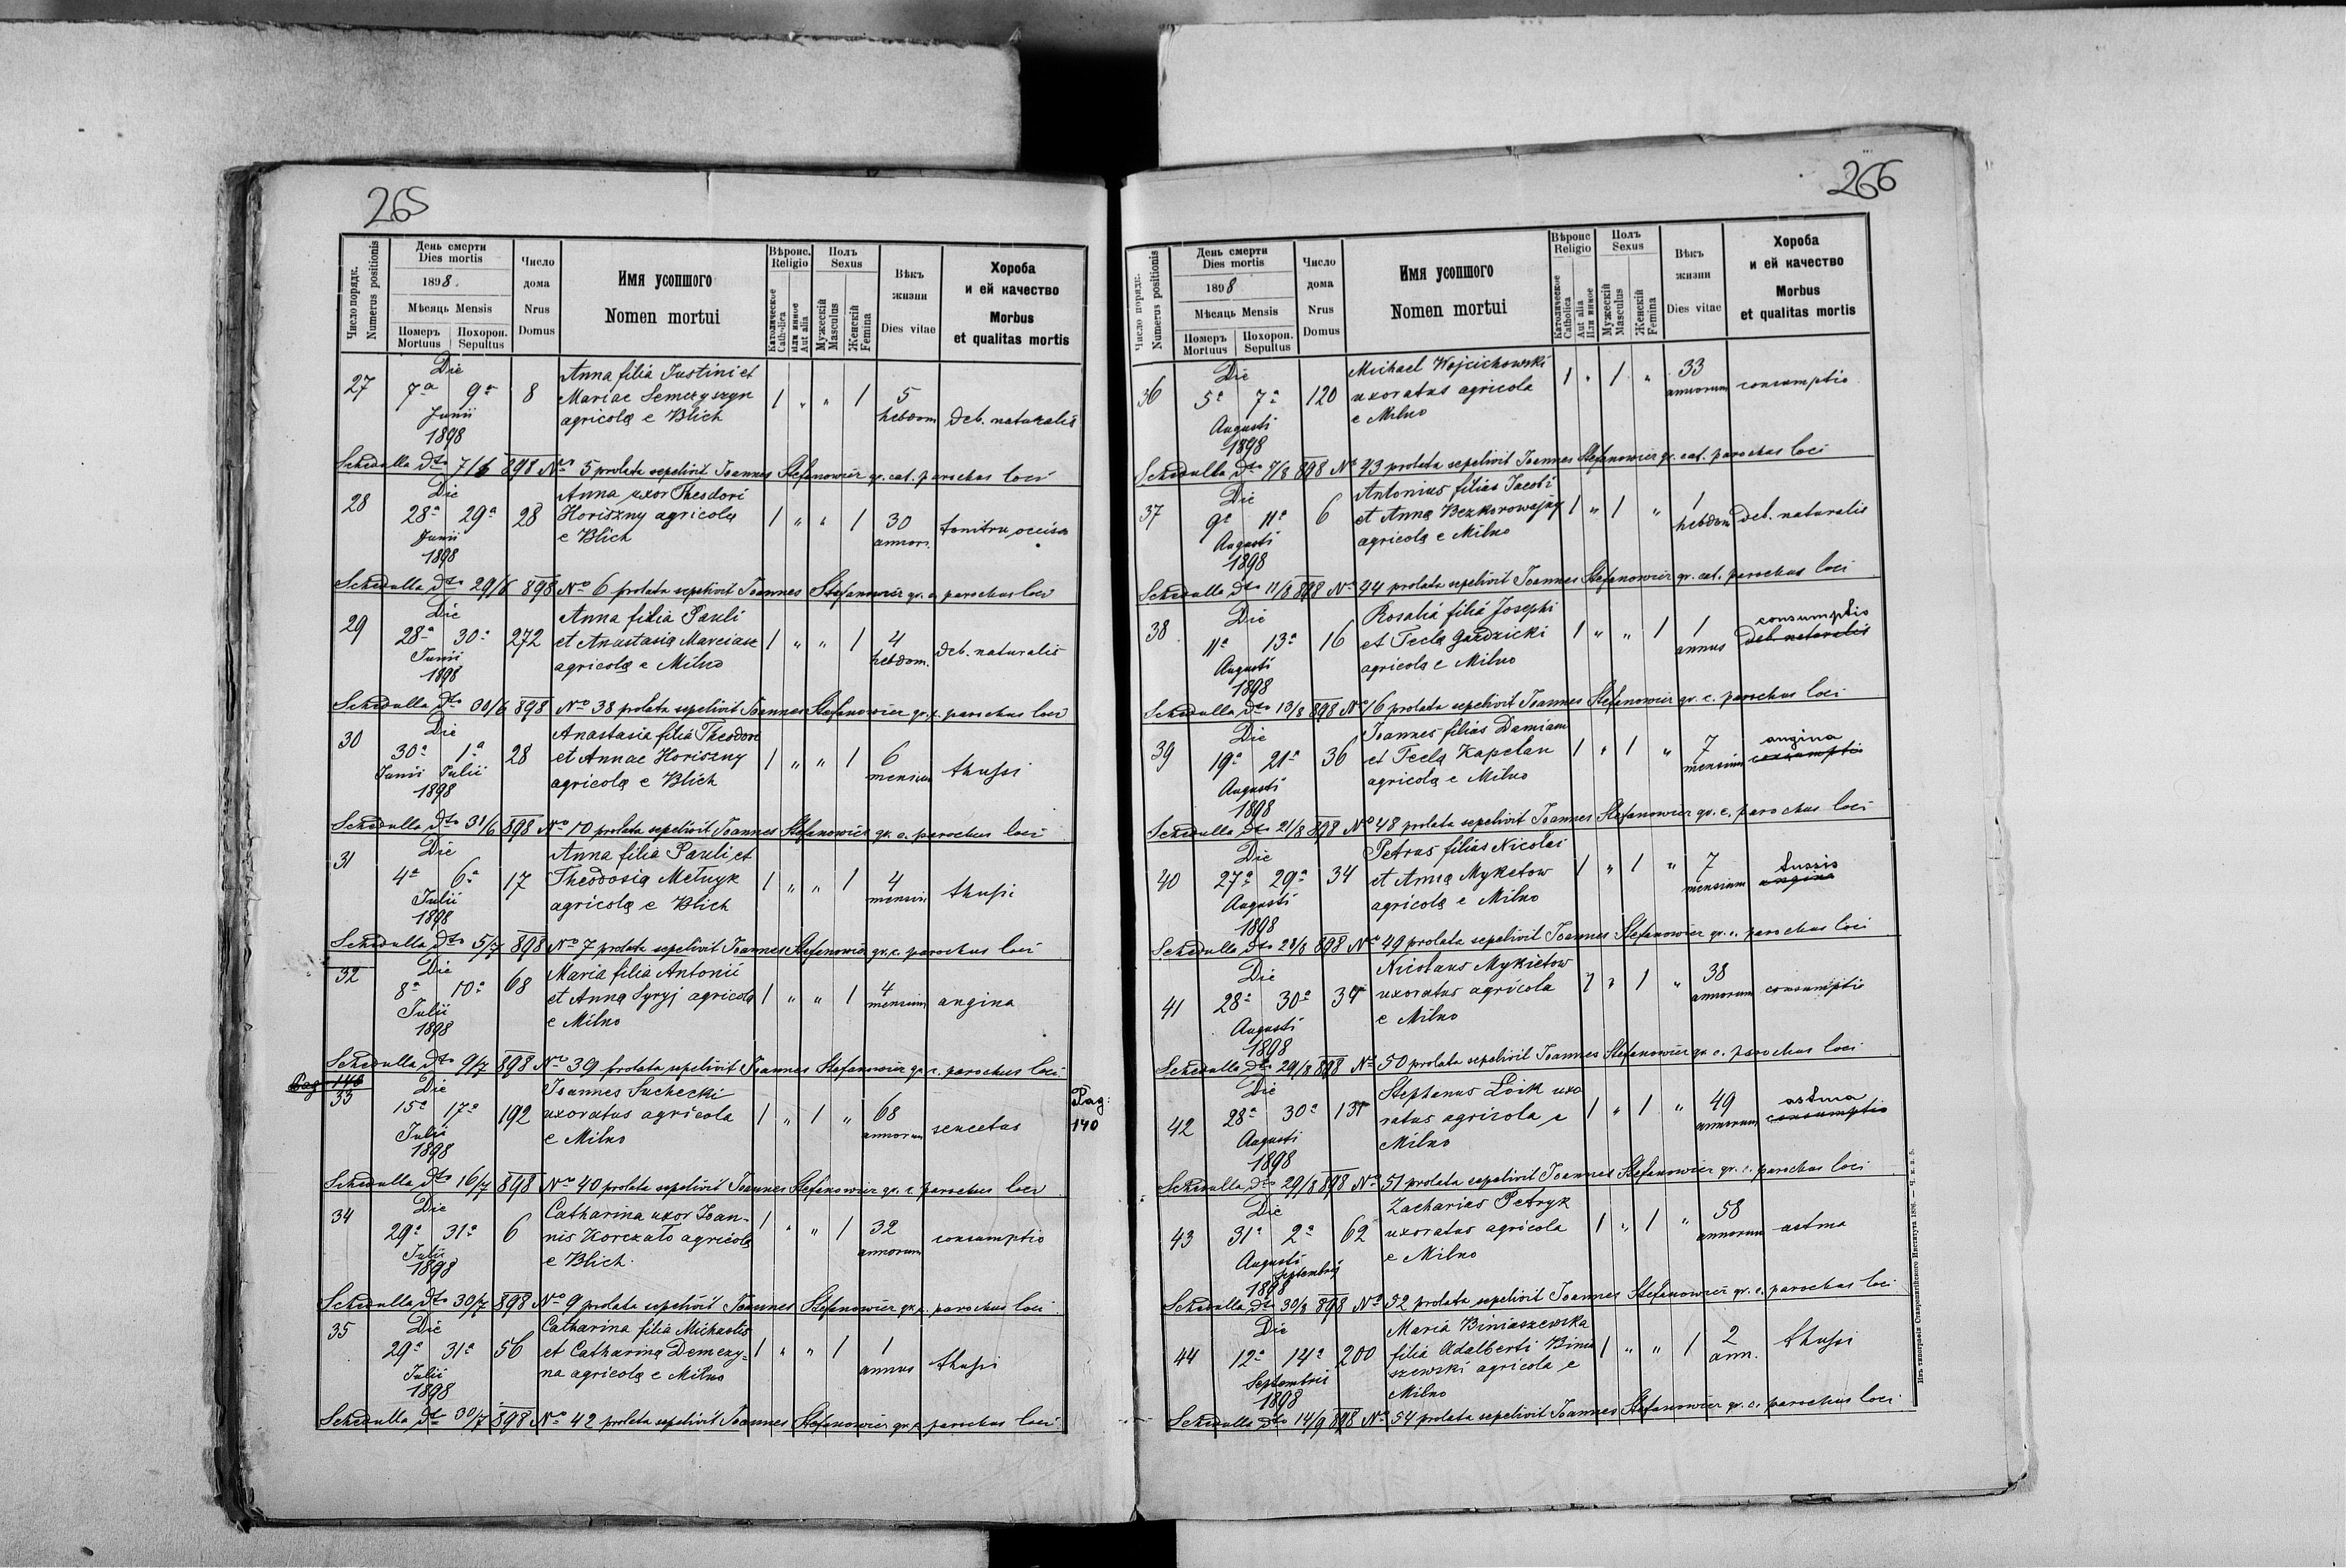 265
Число порядк.
Numerus positionis
День смерти
Dies mortis
1898.
Мѣсяць Mensis
Померъ
Mortuus
Похорон.
Sepultus
Число
дома
Nrus
Domus
Имя усопшого
Nomen mortui
Вѣроис.
Religio
Католическое
Catholica
Или инное
Aut alia
Полъ
Sexus
Мужескій
Masculus
Женскій
Femina
Вѣкъ
жизни
Dies vitae
Хороба
и ей качество
Morbus
et qualitas mortis
27 Die 7ª 9ª Junii 1898 8
Anna filia Justini et
Mariae Semczyszyn
agricolą e Blich
1 " " 1 5 hebdom deb. naturalis
Schedulla dto 7/6 898 Nro 5 prolata sepelivit Joannes Stefanowicz gr. cat. parochus loci
28 Die 28ª 29ª Junii 1898 28
Anna uxor Theodori
Horiszny agricolą
e Blich
1 " " 1 30 annor. tonitru occisa
Schedulla dto 29/6 898 Nro 6 prolata sepelivit Joannes Stefanowicz gr. c. parochus loci
29 Die 28ª 30ª Junii 1898 272
Anna filia Pauli
et Anastasią Marciasz
agricolą e Milno
1 " " 1 4 hebdom. deb. naturalis
Schedulla dto 30/6 898 Nro 38 prolata sepelivit Joannes Stefanowicz gr. c. parochus loci
30 Die 30ª 1ª Junii Julii 1898 28
Anastasia filia Theodori
et Annae Horiszny
agricolą e Blich
1 " " 1 6 mensium thussi
Schedulla dto 31/6 898 Nro 10 prolata sepelivit Joannes Stefanowicz gr. c. parochus loci
31 Die 4ª 6ª Julii 1898 17
Anna filia Pauli et
Theodosią Melnyk
agricolą e Blich
1 " " 1 4 mensium thussi
Schedulla dto 5/7 898 Nro 7 prolata sepelivit Joannes Stefanowicz gr. c. parochus loci
32 Die 8ª 10ª Julii 1898 68
Maria filia Antonii
et Anną Syryj agricolą
e Milno
1 " " 1 4 mensium angina
Schedulla dto 9/7 898 Nro 39 prolata sepelivit Joannes Stefanowicz gr. c. parochus loci
Pag 140
33 Die 15ª 17ª Julii 1898 192
Joannes Suchecki
uxoratus agricola
e Milno
1 " 1 " 68 annorum senectus
Pag: 140
Schedulla dto 16/7 898 Nro 40 prolata sepelivit Joannes Stefanowicz gr. c. parochus loci
34 Die 29ª 31ª Julii 1898 6
Catharina uxor Joan-
nis Korczało agricolą
e Blich.
1 " " 1 32 annorum consumptio
Schedulla dto 30/7 898 Nro 9 prolata sepelivit Joannes Stefanowicz gr. c. parochus loci
35 Die 29ª 31ª Julii 1898 56
Catharina filia Michaelis
et Cathariną Demczy-
na agricolą e Milno
1 " " 1 1 annus thussi
Schedulla dto 30/7 898 Nro 42 prolata sepelivit Joannes Stefanowicz gr. c. parochus loci
266
Число порядк.
Numerus positionis
День смерти
Dies mortis
1898
Мѣсяць Mensis
Померъ
Mortuus
Похорон.
Sepultus
Число
дома
Nrus
Domus
Имя усопшого
Nomen mortui
Вѣроис
Religio
Католическое
Catholica
Aut alia
Или инное
Полъ
Sexus
Мужескій
Masculus
Женскій
Femina
Вѣкъ
жизни
Dies vitae
Хороба
и ей качество
Morbus
et qualitas mortis
36 Die 5ª 7ª Augusti 1898 120
Michael Wojcichowski
uxoratus agricola
e Milno
1 " 1 " 33 annorum consumptio
Schedulla dto 7/8 898 No 43 prolata sepelivit Joannes Stefanowicz gr. cat. parochus loci
37 Die 9ª 11ª Augusti 1898 6
Antonius filius Jacobi
et Anną Bezkorowajny
agricolą e Milno
1 " 1 " 1 hebdom deb. naturalis
Schedulla dto 11/8 898 No 44 prolata sepelivit Joannes Stefanowicz gr. cat. parochus loci
38 Die 11ª 13ª Augusti 1898 16
Rosalia filia Josephi
et Teclą Gardzicki
agricolą e Milno
1 " " 1 1 annus consumptio
deb. naturalis
Schedulla dto 13/8 898 No 16 prolata sepelivit Joannes Stefanowicz gr. c. parochus loci
39 Die 19ª 21ª Augusti 1898 36
Joannes filius Damiani
et Teclą Kapelan
agricolą e Milno
1 " 1 " 7 mensium angina
consumptio
Schedulla dto 21/8 898 No 48 prolata sepelivit Joannes Stefanowicz gr. c. parochus loci
40 Die 27ª 29ª Augusti 1898 34
Petrus filius Nicolai
et Anną Myketow
agricolą e Milno
1 " 1 " 7 mensium tussis
angina
Schedulla dto 28/8 898 No 49 prolata sepelivit Joannes Stefanowicz gr. c. parochus loci
41 Die 28ª 30ª Augusti 1898
Nicolaus Mykietow
uxoratus agricola
e Milno
1 " 1 " 38 annorum consumptio
Schedulla dto 29/8 898 No 50 prolata sepelivit Joannes Stefanowicz gr. c. parochus loci
42 Die 28ª 30ª Augusti 1898
Stephanus Loik uxo
ratus agricola e
Milno
1 " 1 " 49 annorum astma
consumptio
Schedulla dto 29/8 898 No 51 prolata sepelivit Joannes Stefanowicz gr. c. parochus loci
43 Die 31ª 2ª Augusti Septembris 1898 62
Zacharias Petryk
uxoratus agricola
e Milno
1 " 1 " 58 annorum astma
Schedulla dto 30/8 898 No 52 prolata sepelivit Joannes Stefanowicz gr. c. parochus loci
44 Die 12ª 14ª Septembris 1898 200
Maria Biniaszewska
filia Adalberti Binia
szewski agricola e
Milno
1 " " 1 2 ann. thussi
Schedulla dto 14/9 898 No 54 prolata sepelivit Joannes Stefanowicz gr. c. parochus loci
Изъ типографіи Ставропигійского Института 1896. — Ч. к. п. 5.